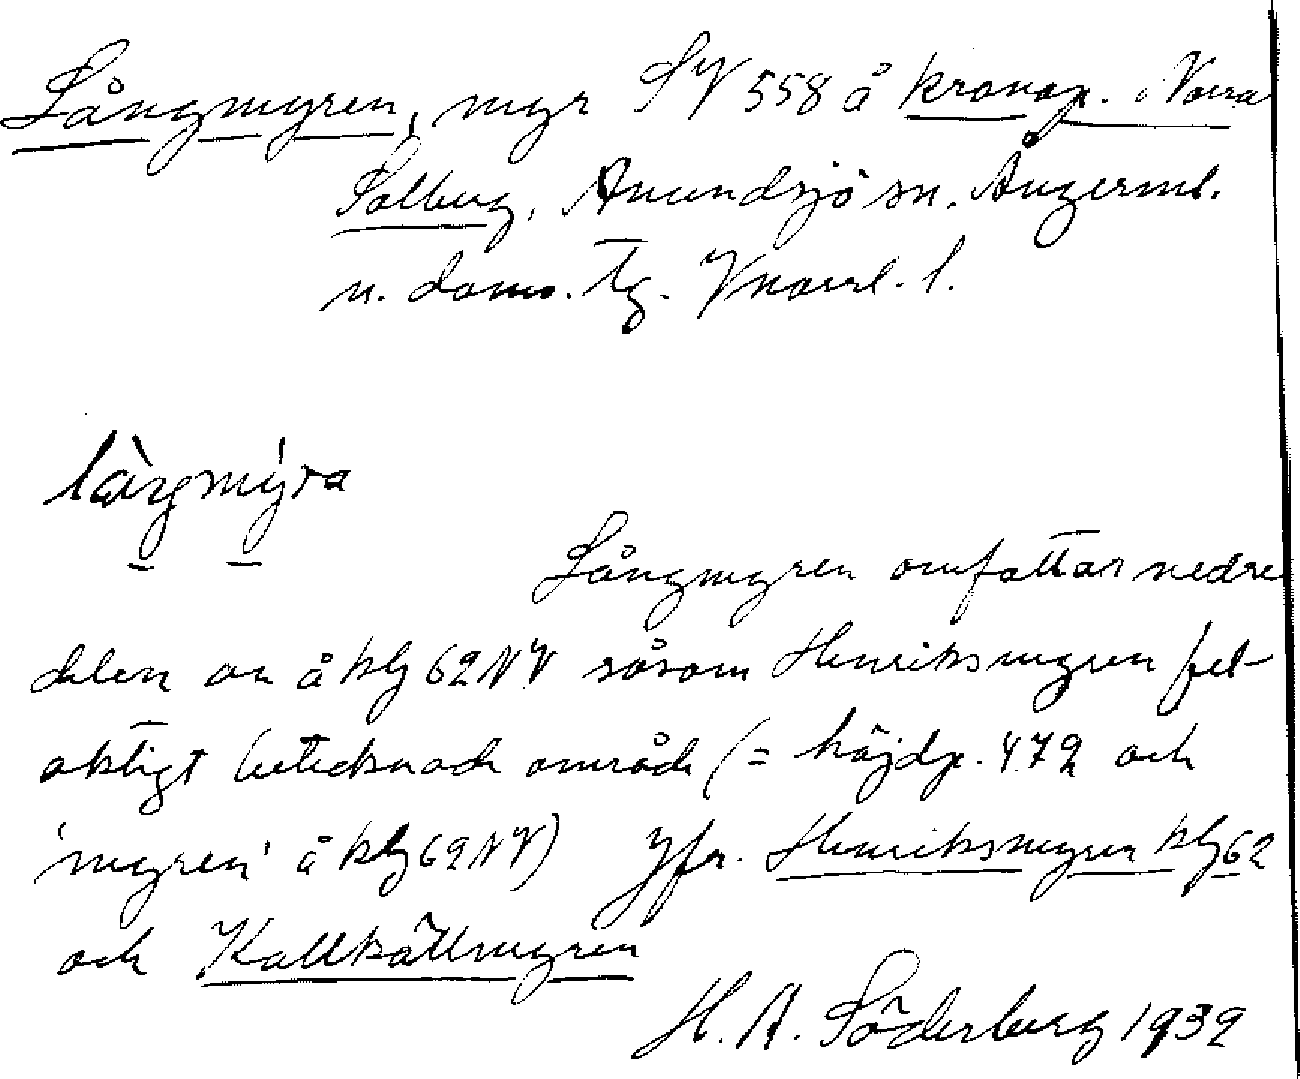 Långmyren, myr SV 558 å kronop. i Norra
Solberg, Anundsjö sn. Ångerml.
n. doms. Tg. Vnorrl. l.
làŋmýra
Långmyren omfattar nedre
delen av å kbl 62NV såsom Henriksmyren fel-
aktigt betecknade område (= höjdp. 472 och
'myren' å kbl 62NV) Jfr. Henriksmyren kbl 62
och Kallkällmyren
H. A. Söderberg 1932